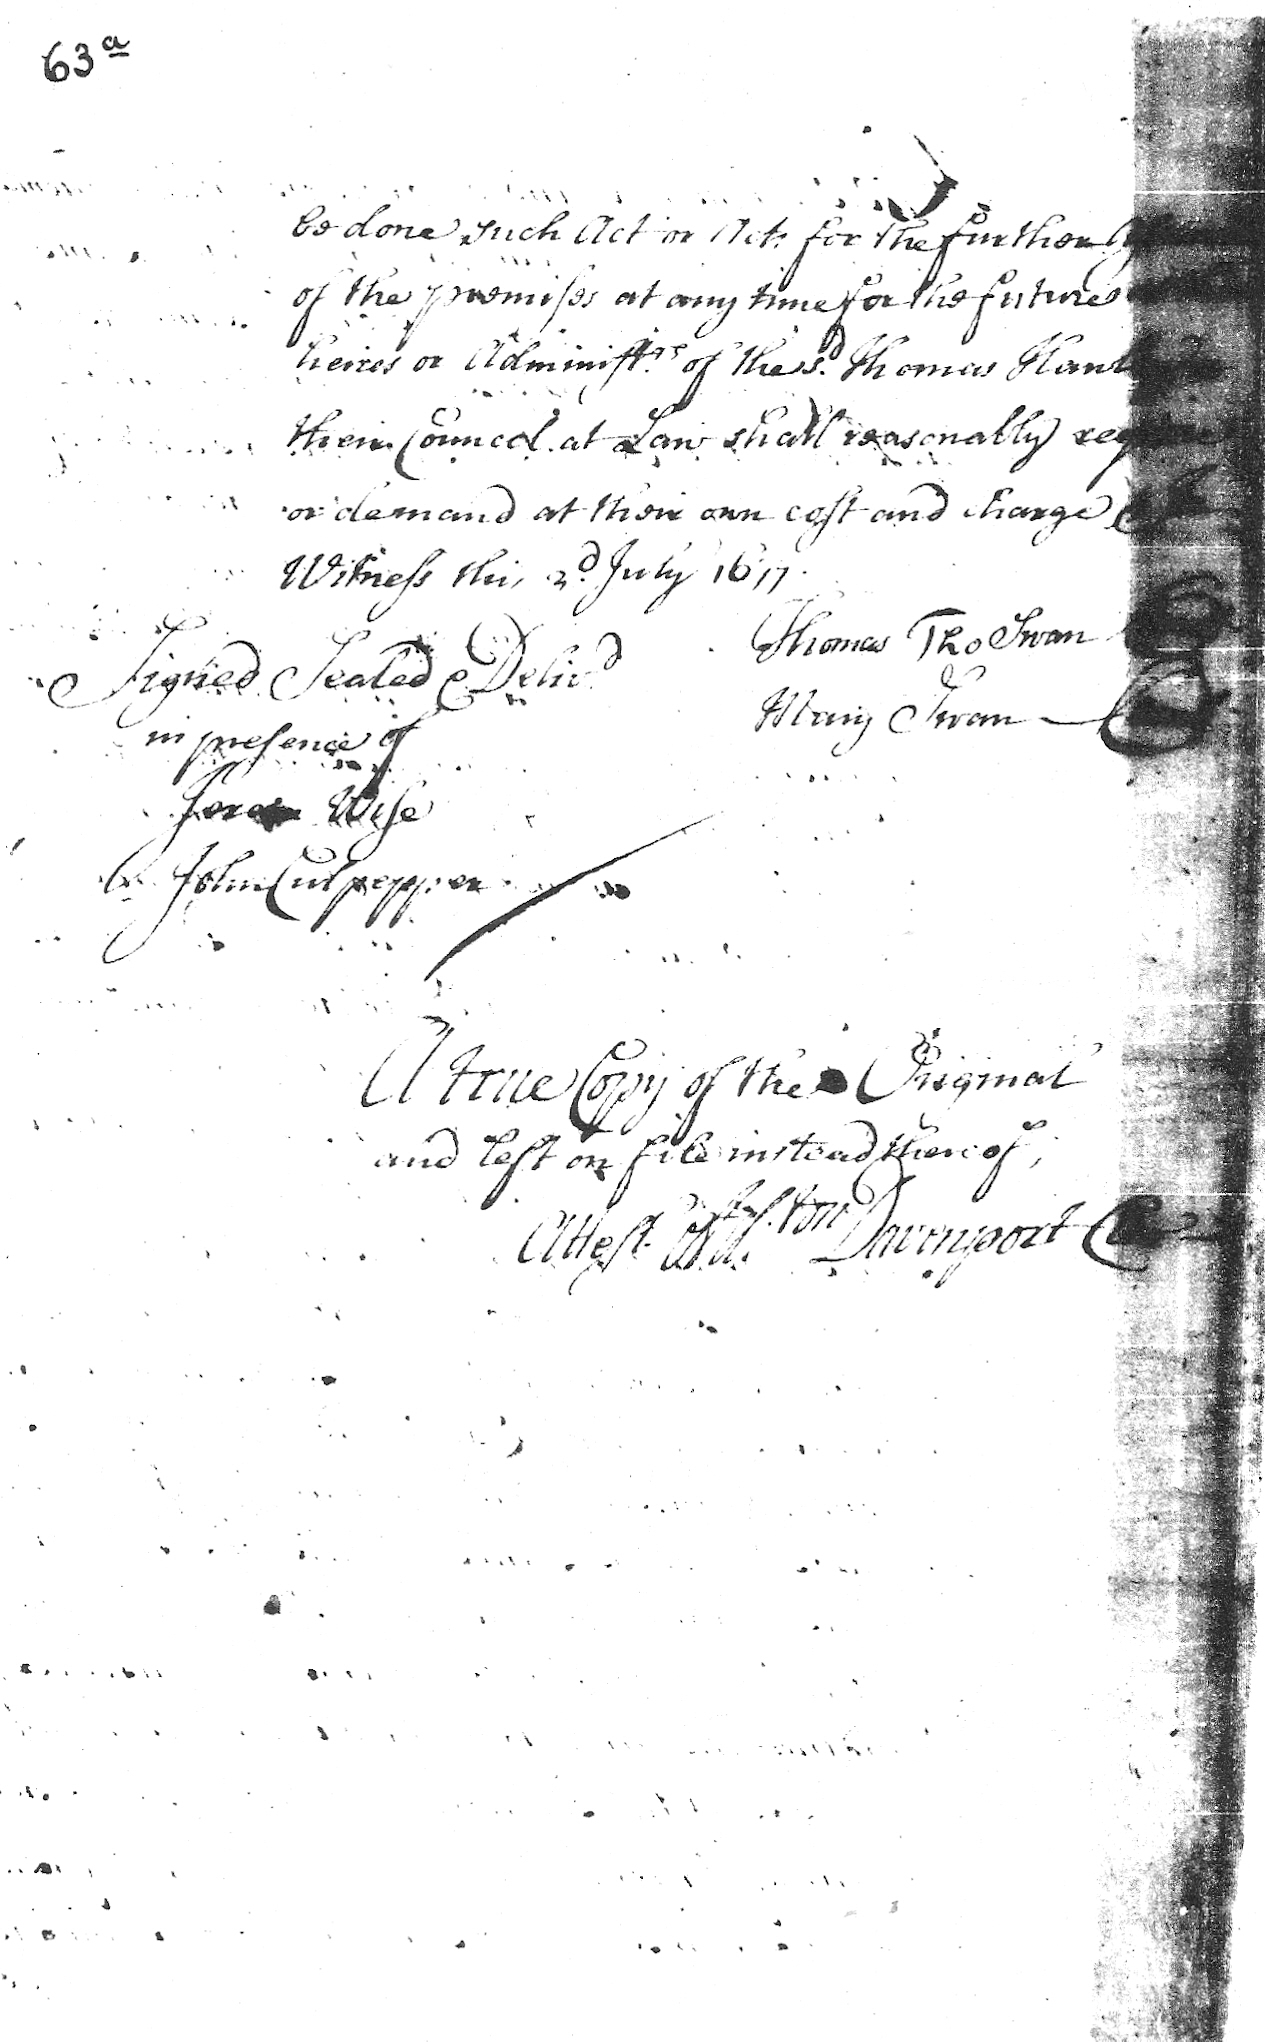 63a
be done such Act or Acts for the further
of the premises at any time for the future
heires or Administrs of the sd. Thomas
their Councel at Law shall reasonably
or demand at their own cost and charge
Witness this 2d. July 1677.
Signed Sealed & Delivd
Thomas Tho Swan
Mary Swan
in presence of
Wise
John Culpepper
A true Copy of the Original
and left on file instead thereof;
Attest Davenport